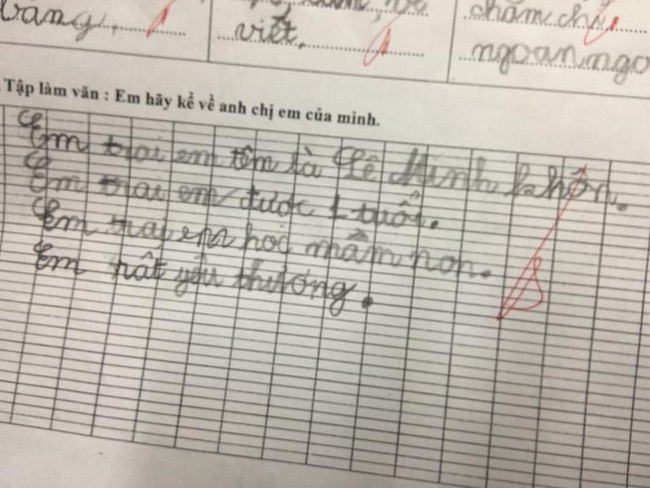 vâng,
viết,
chăm chỉ,
ngoan ngo
Tập làm văn : Em hãy kể về anh chị em của mình.
Em trai em têm là Lê Minh khôn.
Em trai em được 1 tuổi.
Em trai em học mầm non.
Em rất yêu thương.